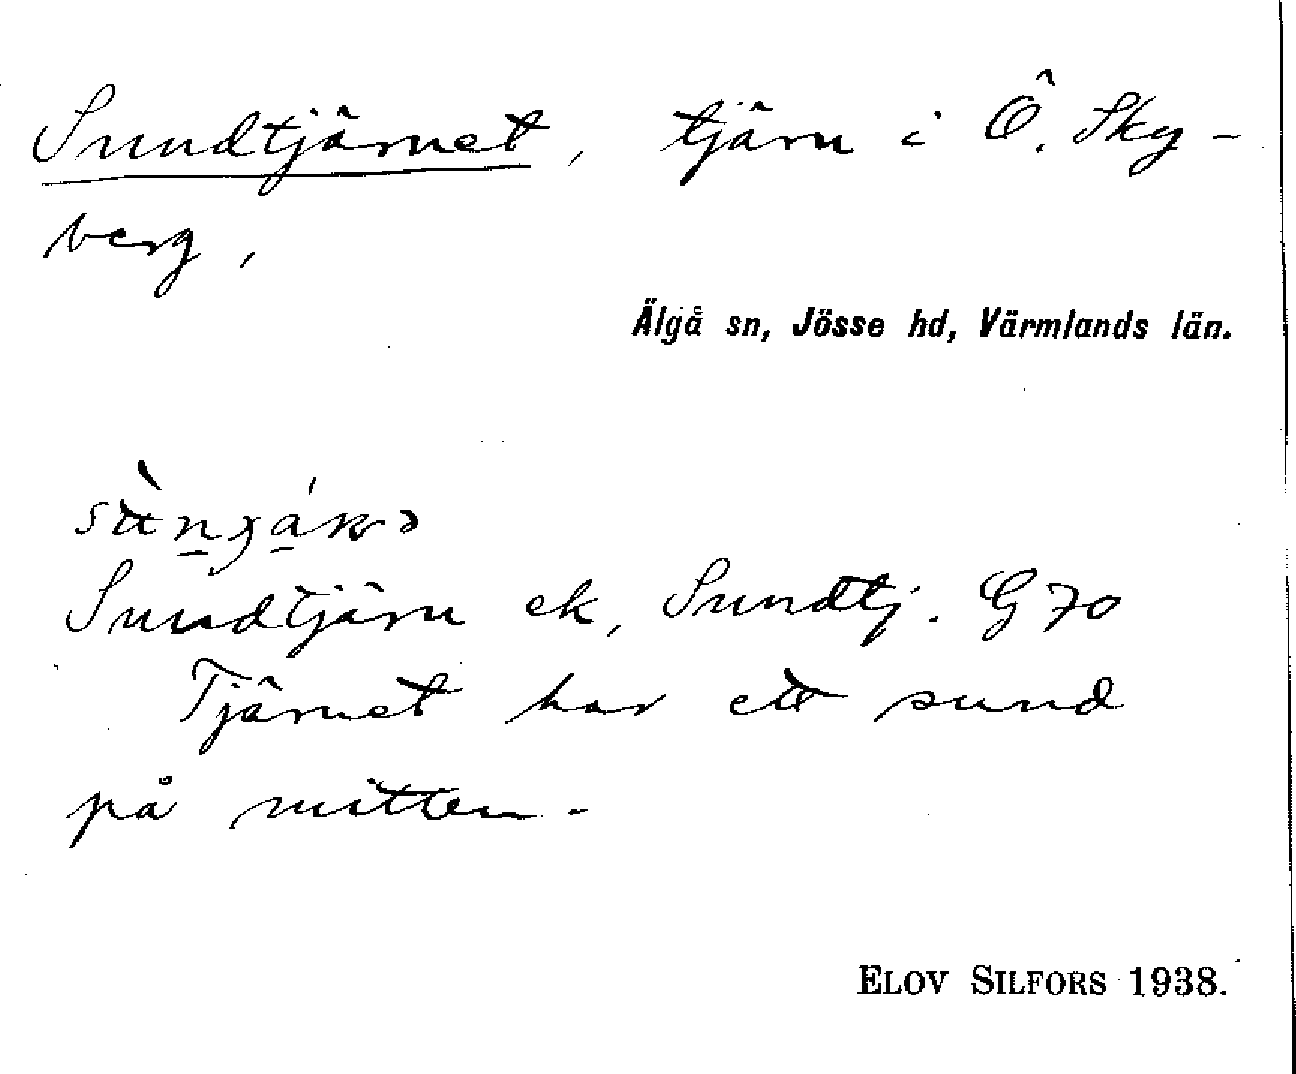 Sundtjärnet, tjärn i Ö. Sky-
berg,
Älgå sn, Jösse hd, Värmlands län.
Sundtjärn ek, Sundtj. G 70
Tjärnet har ett sund
på mitten.
ELOV SILFORS 1938.